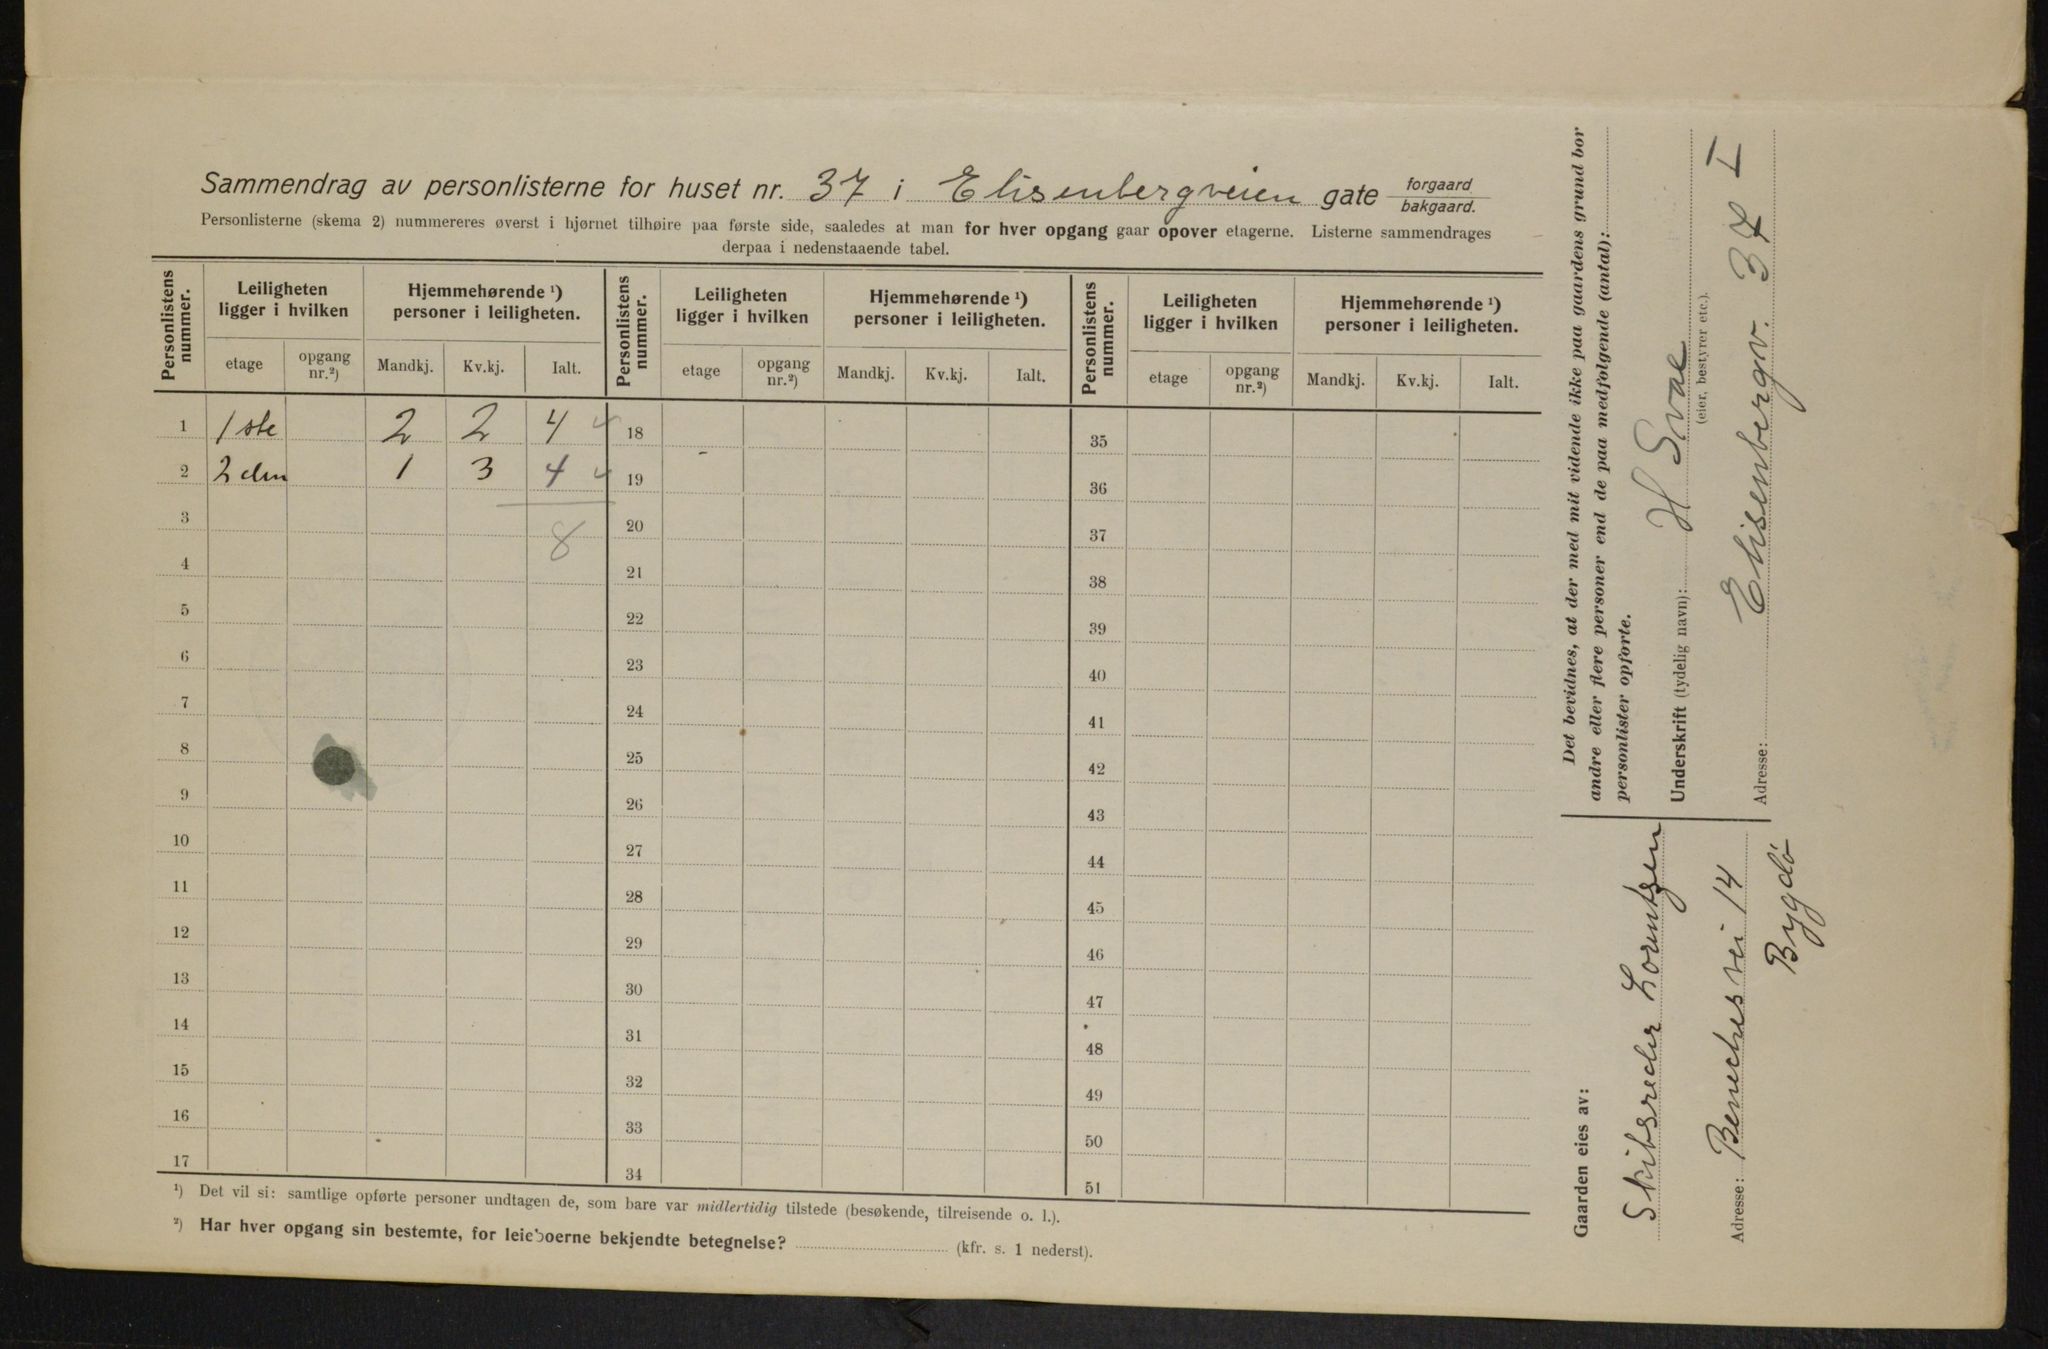 Sammendrag av personlisterne for huset nr. 37 i Elisenbergveien gate forgaard
bakgaard.
Personlisterne (skema 2) nummereres øverst i hjørnet tilhøire paa første side, saaledes at man for hver opgang gaar opover etagerne. Listerne sammendrages
derpaa i nedenstaaende tabel.
Personlistens nummer. Leiligheten ligger i hvilken Hjemmehørende ¹) personer i leiligheten. Personlistens nummer. Leiligheten ligger i hvilken Hjemmehørende ¹) personer i leiligheten. Personlistens nummer. Leiligheten ligger i hvilken Hjemmehørende ¹) personer i leiligheten.
etage opgang nr.²) Mandkj. Kv.kj. Ialt. etage opgang nr.²) Mandkj. Kv.kj. Ialt. etage opgang nr.²) Mandkj. Kv.kj. Ialt.
1 1ste 2 2 4 4 18 35
2 2den 1 3 4 4 19 36
3 8 20 37
4 21 38
5 22 39
6 23 40
7 24 41
8 25 42
9 26 43
10 27 44
11 28 45
12 29 46
13 30 47
14 31 48
15 32 49
16 33 50
17 34 51
¹) Det vil si: samtlige opførte personer undtagen de, som bare var midlertidig tilstede (besøkende, tilreisende o. l.).
²) Har hver opgang sin bestemte, for leieboerne bekjendte betegnelse? (kfr. s. 1 nederst).
Det bevidnes, at der med mit vidende ikke paa gaardens grund bor
andre eller flere personer end de paa medfølgende (antal):
personlister opførte.
Underskrift (tydelig navn): H Svae
(eier, bestyrer etc.).
Adresse: Elisenbergv. 37 I
Gaarden eies av:
Skibsreder Lorentzen
Adresse: Benechesvei 14
Bygdö